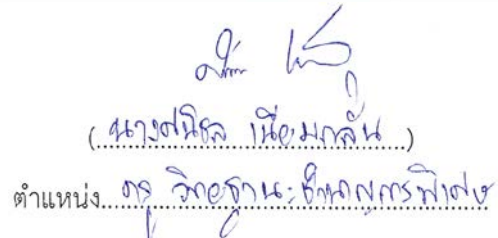 (นางศนิชล เนียมกลั่น)
ตำแหน่ง ครู วิทยฐานะ ชำนาญการพิเศษ